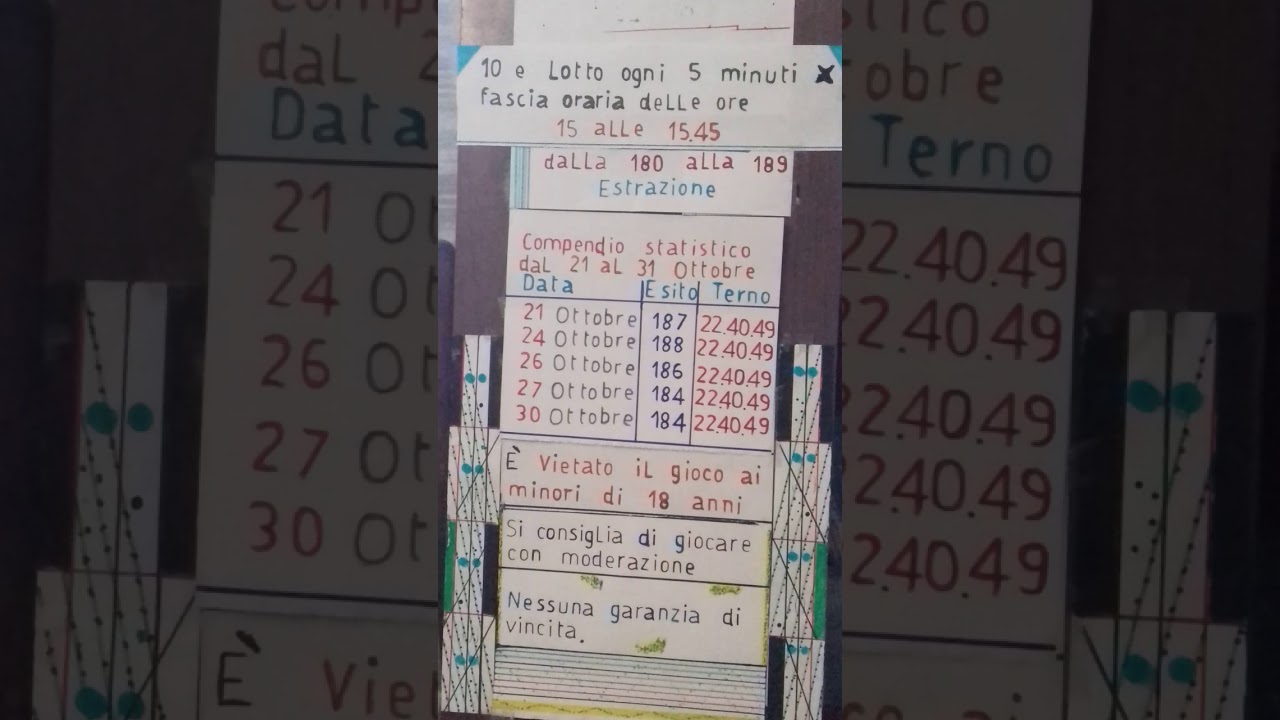 10 e Lotto ogni 5 minuti x
fascia oraria delle ore
15 alle 15.45
dalla 180 alla 189
Estrazione
Compendio statistico
dal 21 al 31 Ottobre
Data Esito Terno
21 Ottobre 187 22.40.49
24 Ottobre 188 22.40.49
26 Ottobre 186 22.40.49
27 Ottobre 184 22.40.49
30 Ottobre 184 22.40.49
È Vietato il gioco ai
minori di 18 anni
Si consiglia di giocare
con moderazione
Nessuna garanzia di
vincita.